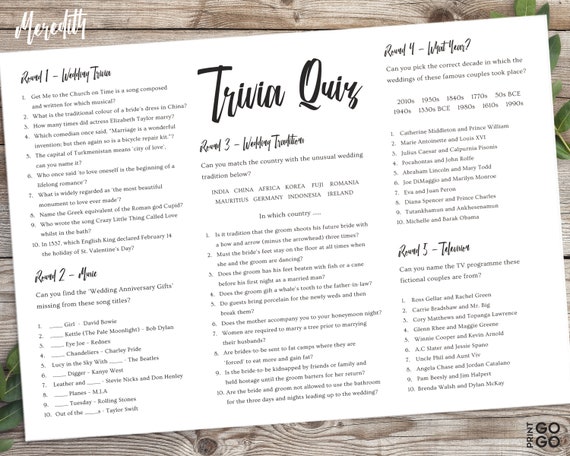 Meredith
Round 1 - Wedding Trivia
1. Get Me to the Church on Time is a song composed
and written for which musical?
2. What is the traditional colour of a bride's dress in China?
3. How many times did actress Elizabeth Taylor marry?
4. Which comedian once said, "Marriage is a wonderful
invention; but then again so is a bicycle repair kit."?
5. The capital of Turkmenistan means 'city of love',
can you name it?
6. Who once said 'to love oneself is the beginning of a
lifelong romance'?
7. What is widely regarded as 'the most beautiful
monument to love ever made'?
8. Name the Greek equivalent of the Roman god Cupid?
9. Who wrote the song Crazy Little Thing Called Love
whilst in the bath?
10. In 1537, which English King declared February 14
the holiday of St. Valentine's Day?
Round 2 - Music
Can you find the 'Wedding Anniversary Gifts'
missing from these song titles?
1. ____ Girl - David Bowie
2. ____ Kettle (The Pale Moonlight) - Bob Dylan
3. ____ Eye Joe - Rednex
4. ____ Chandeliers - Charley Pride
5. Lucy in the Sky With ____ - The Beatles
6. ____ Digger - Kanye West
7. Leather and ____ - Stevie Nicks and Don Henley
8. ____ Planes - M.I.A
9. ____ Tuesday - Rolling Stones
10. Out of the ____s - Taylor Swift
Trivia Quiz
Round 3 - Wedding Tradition
Can you match the country with the unusual wedding
tradition below?
INDIA CHINA AFRICA KOREA FUJI ROMANIA
MAURITIUS GERMANY INDONESIA IRELAND
In which country ....
1. Is it tradition that the groom shoots his future bride with
a bow and arrow (minus the arrowhead) three times?
2. Must the bride's feet stay on the floor at all times when
she and the groom are dancing?
3. Does the groom has his feet beaten with fish or a cane
before his first night as a married man?
4. Does the groom gift a whale's tooth to the father-in-law?
5. Do guests bring porcelain for the newly weds and then
break them?
6. Does the mother accompany you to your honeymoon night?
7. Women are required to marry a tree prior to marrying
their husbands?
8. Are brides-to-be sent to fat camps where they are
'forced' to eat more and gain fat?
9. Is the bride-to be kidnapped by friends or family and
held hostage until the groom barters for her return?
10. Are the bride and groom not allowed to use the bathroom
for the three days and nights leading up to the wedding?
Round 4 - What Year?
Can you pick the correct decade in which the
weddings of these famous couples took place?
2010s 1950s 1840s 1770s 50s BCE
1940s 1330s BCE 1980s 1610s 1990s
1. Catherine Middleton and Prince William
2. Marie Antoinette and Louis XVI
3. Julius Caesar and Calpurnia Pisonis
4. Pocahontas and John Rolfe
5. Abraham Lincoln and Mary Todd
6. Joe DiMaggio and Marilyn Monroe
7. Eva and Juan Peron
8. Diana Spencer and Prince Charles
9. Tutankhamun and Ankhesenamun
10. Michelle and Barak Obama
Round 5 - Television
Can you name the TV programme these
fictional couples are from?
1. Ross Gellar and Rachel Green
2. Carrie Bradshaw and Mr. Big
3. Cory Matthews and Topanga Lawrence
4. Glenn Rhee and Maggie Greene
5. Winnie Cooper and Kevin Arnold
6. A.C Slater and Jessie Spano
7. Uncle Phil and Aunt Viv
8. Angela Chase and Jordan Catalano
9. Pam Beesly and Jim Halpert
10. Brenda Walsh and Dylan McKay
PRINT GO GO